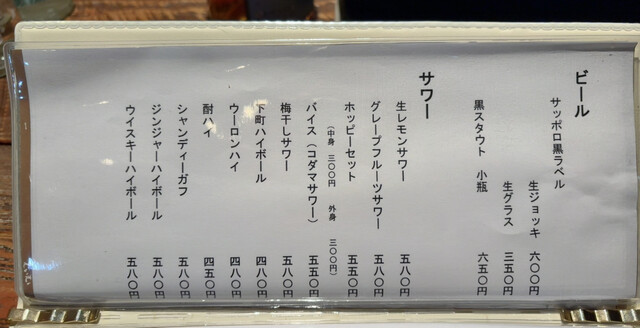 ビール
サッポロ黒ラベル
生ジョッキ 六〇〇円
生グラス 三五〇円
黒スタウト 小瓶 六五〇円
サワー
生レモンサワー 五八〇円
グレープフルーツサワー 五八〇円
ホッピーセット 五五〇円
(中身 三〇〇円 外身 三〇〇円)
バイス(コダマサワー) 五五〇円
梅干しサワー 五八〇円
下町ハイボール 四八〇円
ウーロンハイ 四八〇円
酎ハイ 四五〇円
シャンディーガフ 五八〇円
ジンジャーハイボール 五八〇円
ウイスキーハイボール 五八〇円